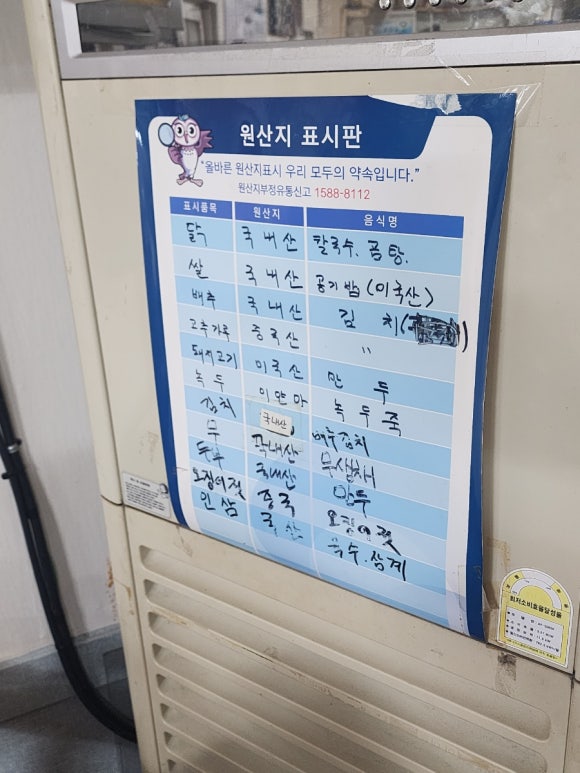 원산지 표시판
"올바른 원산지표시 우리 모두의 약속입니다."
원산지부정유통신고 1588-8112
표시품목 원산지 음식명
닭 국내산 칼국수. 곰탕.
쌀 국내산 공기밥 (미국산)
배추 국내산 김치(
고추가루 중국산 "
돼지고기 미국산 만두
녹두 미얀마 녹두죽
김치 국내산 배추김치
무 국내산 무생채
두부 국내산 만두
오징어젓 중국 오징어젓
인삼 국산 국수.삼계
최저소비효율달성률